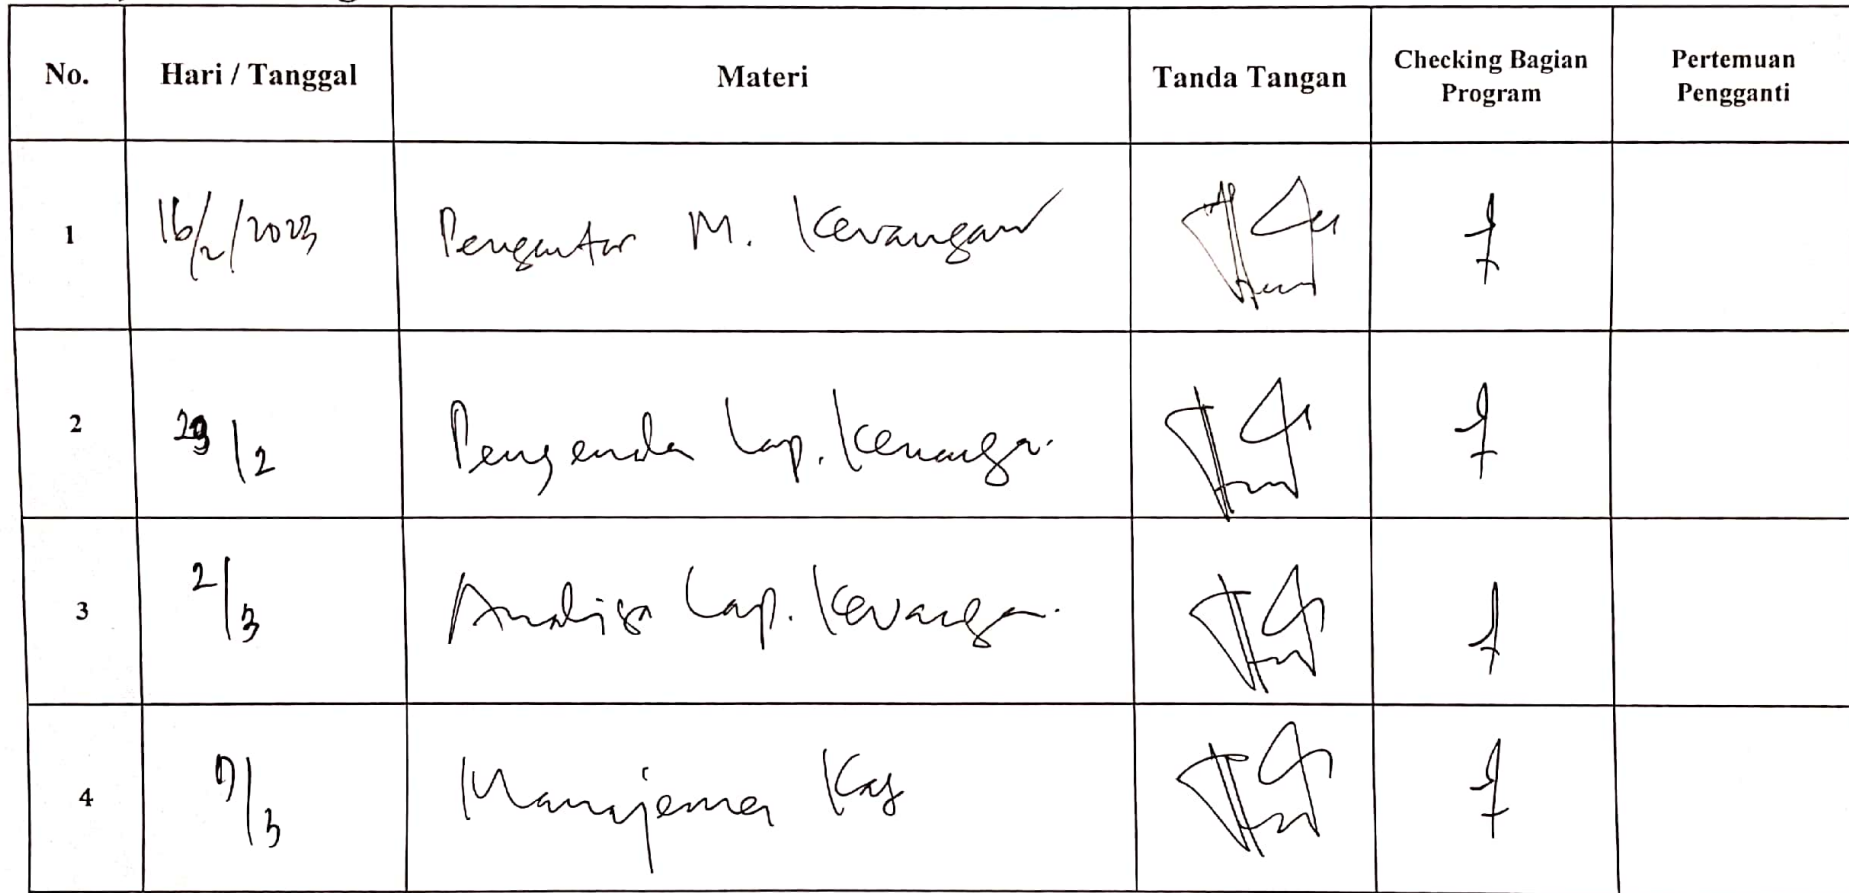 No. Hari / Tanggal Materi Tanda Tangan Checking Bagian Program Pertemuan Pengganti
1 16/2/2023 Pengantar M. Keuangan
2 23/2 Lap. Keuangan.
3 2/3 Analisa Lap. Keuangan.
4 9/3 Manajemen Kas